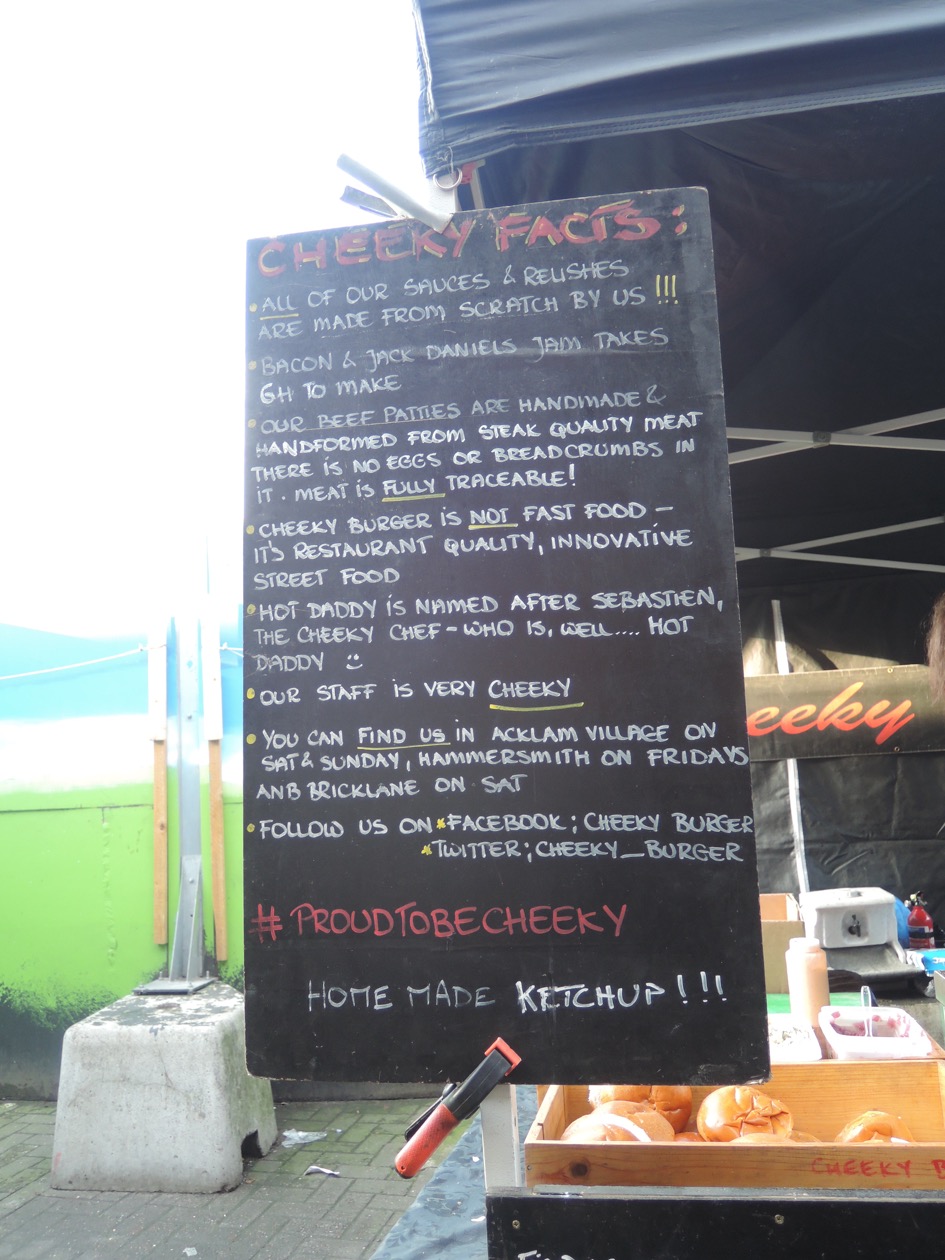 CHEEKY FACTS:
• ALL OF OUR SAUCES & RELISHES
ARE MADE FROM SCRATCH BY US !!!
• BACON & JACK DANIELS JAM TAKES
6H TO MAKE
• OUR BEEF PATTIES ARE HANDMADE &
HANDFORMED FROM STEAK QUALITY MEAT
THERE IS NO EGGS OR BREADCRUMBS IN
IT. MEAT IS FULLY TRACEABLE!
• CHEEKY BURGER IS NOT FAST FOOD –
IT'S RESTAURANT QUALITY, INNOVATIVE
STREET FOOD
• HOT DADDY IS NAMED AFTER SEBASTIEN,
THE CHEEKY CHEF – WHO IS, WELL.... HOT
DADDY ☺
• OUR STAFF IS VERY CHEEKY
• YOU CAN FIND US IN ACKLAM VILLAGE ON
SAT & SUNDAY, HAMMERSMITH ON FRIDAYS
ANB BRICKLANE ON SAT
• FOLLOW US ON *FACEBOOK; CHEEKY BURGER
*TWITTER; CHEEKY_BURGER
#PROUDTOBECHEEKY
HOME MADE KETCHUP!!!
eeky
CHEEKY B